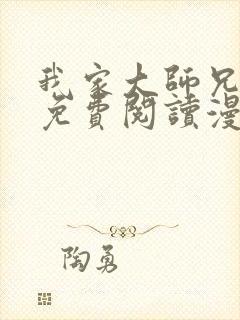 我家大師兄
免費閱讀漫
陶勇